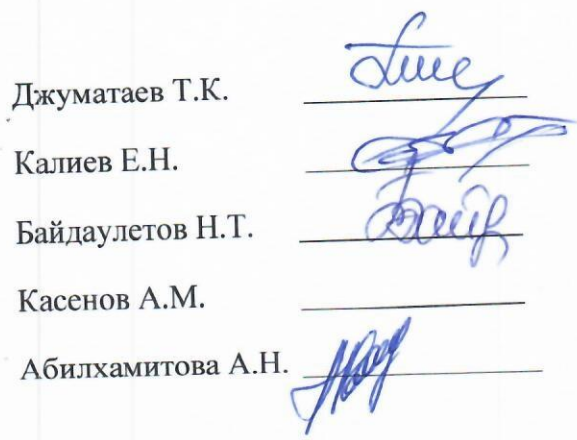 Джуматаев Т.К.
Калиев Е.Н.
Байдаулетов Н.Т.
Касенов А.М.
Абилхамитова А.Н.